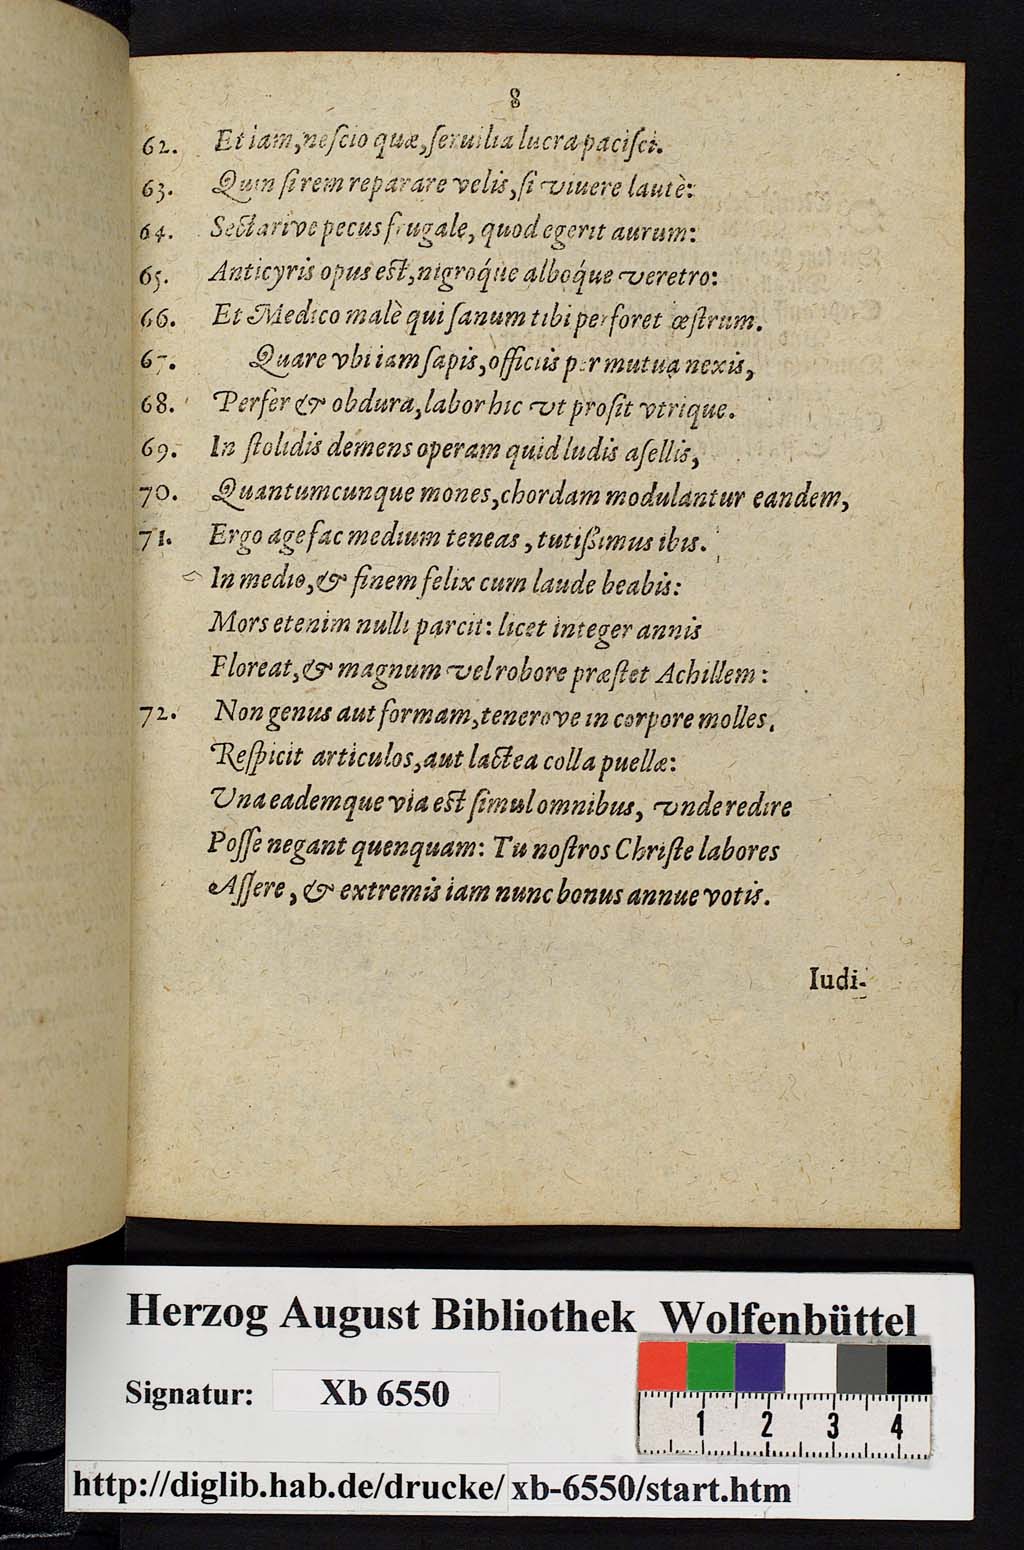 8
62. Et iam, neſcio quæ, ſeruilia lucra paciſci.
63. Quin ſi rem reparare velis, ſi viuere lautè:
64. Sectarive pecus frugale, quod egerit aurum:
65. Anticyris opus eſt, nigroq́ue alboq́ue veretro:
66. Et Medico malè qui ſanum tibi perforet œſtrum.
67. Quare vbi iam ſapis, officiis per mutua nexis,
68. Perfer & obdura, labor hic vt proſit vtrique.
69. In ſtolidis demens operam quid ludis aſellis,
70. Quantumcunque mones, chordam modulantur eandem,
71. Ergo age fac medium teneas, tutißimus ibis.
In medio, & finem felix cum laude beabis:
Mors etenim nulli parcit: licet integer annis
Floreat, & magnum vel robore præſtet Achillem:
72. Non genus aut formam, tenerove in corpore molles.
Reſpicit articulos, aut lactea colla puellæ:
Vna eademque via eſt ſimul omnibus, vnde redire
Poſſe negant quenquam: Tu noſtros Chriſte labores
Aſſere, & extremis iam nunc bonus annue votis.
Iudi-
Herzog August Bibliothek Wolfenbüttel
Signatur: Xb 6550
1 2 3 4
http://diglib.hab.de/drucke/xb-6550/start.htm